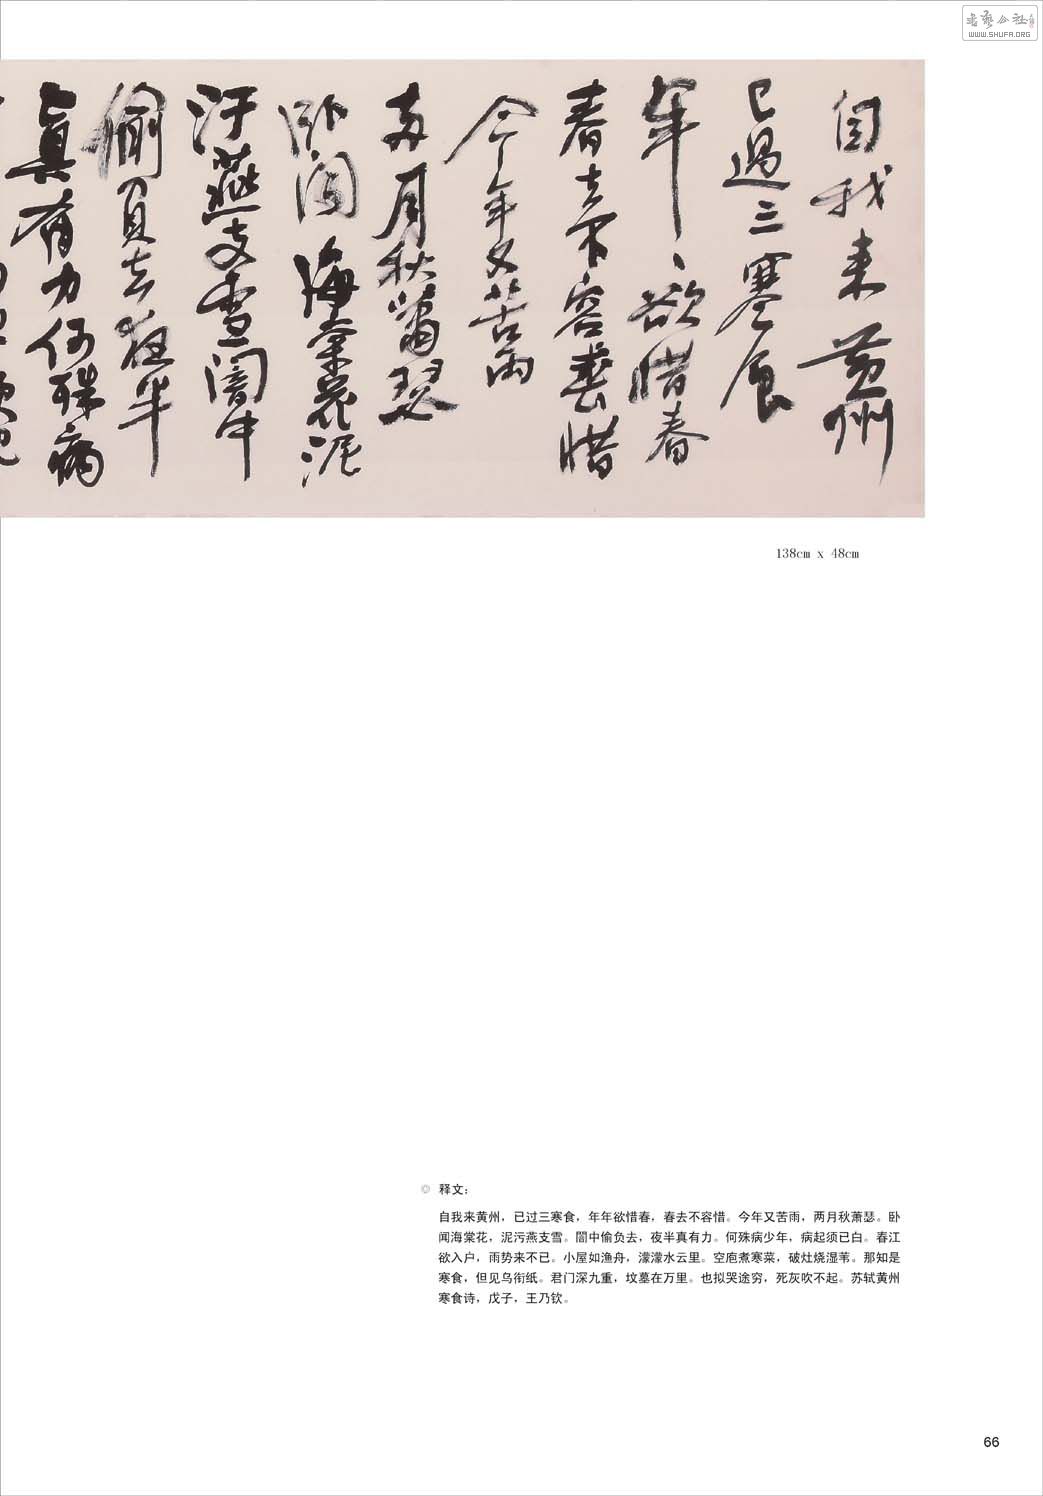 書藝公社
WWW.SHUFA.ORG
自我来黄州
已過三寒食
年〻欲惜春
春去不容惜
今年又苦雨
兩月秋蕭瑟
卧聞海棠花泥
汙燕支雪闇中
偷負去夜半
真有力何殊病
138cm x 48cm
◎ 释文：
自我来黄州，已过三寒食，年年欲惜春，春去不容惜。今年又苦雨，两月秋萧瑟。卧
闻海棠花，泥污燕支雪。闇中偷负去，夜半真有力。何殊病少年，病起须已白。春江
欲入户，雨势来不已。小屋如渔舟，濛濛水云里。空庖煮寒菜，破灶烧湿苇。那知是
寒食，但见乌衔纸。君门深九重，坟墓在万里。也拟哭途穷，死灰吹不起。苏轼黄州
寒食诗，戊子，王乃钦。
66